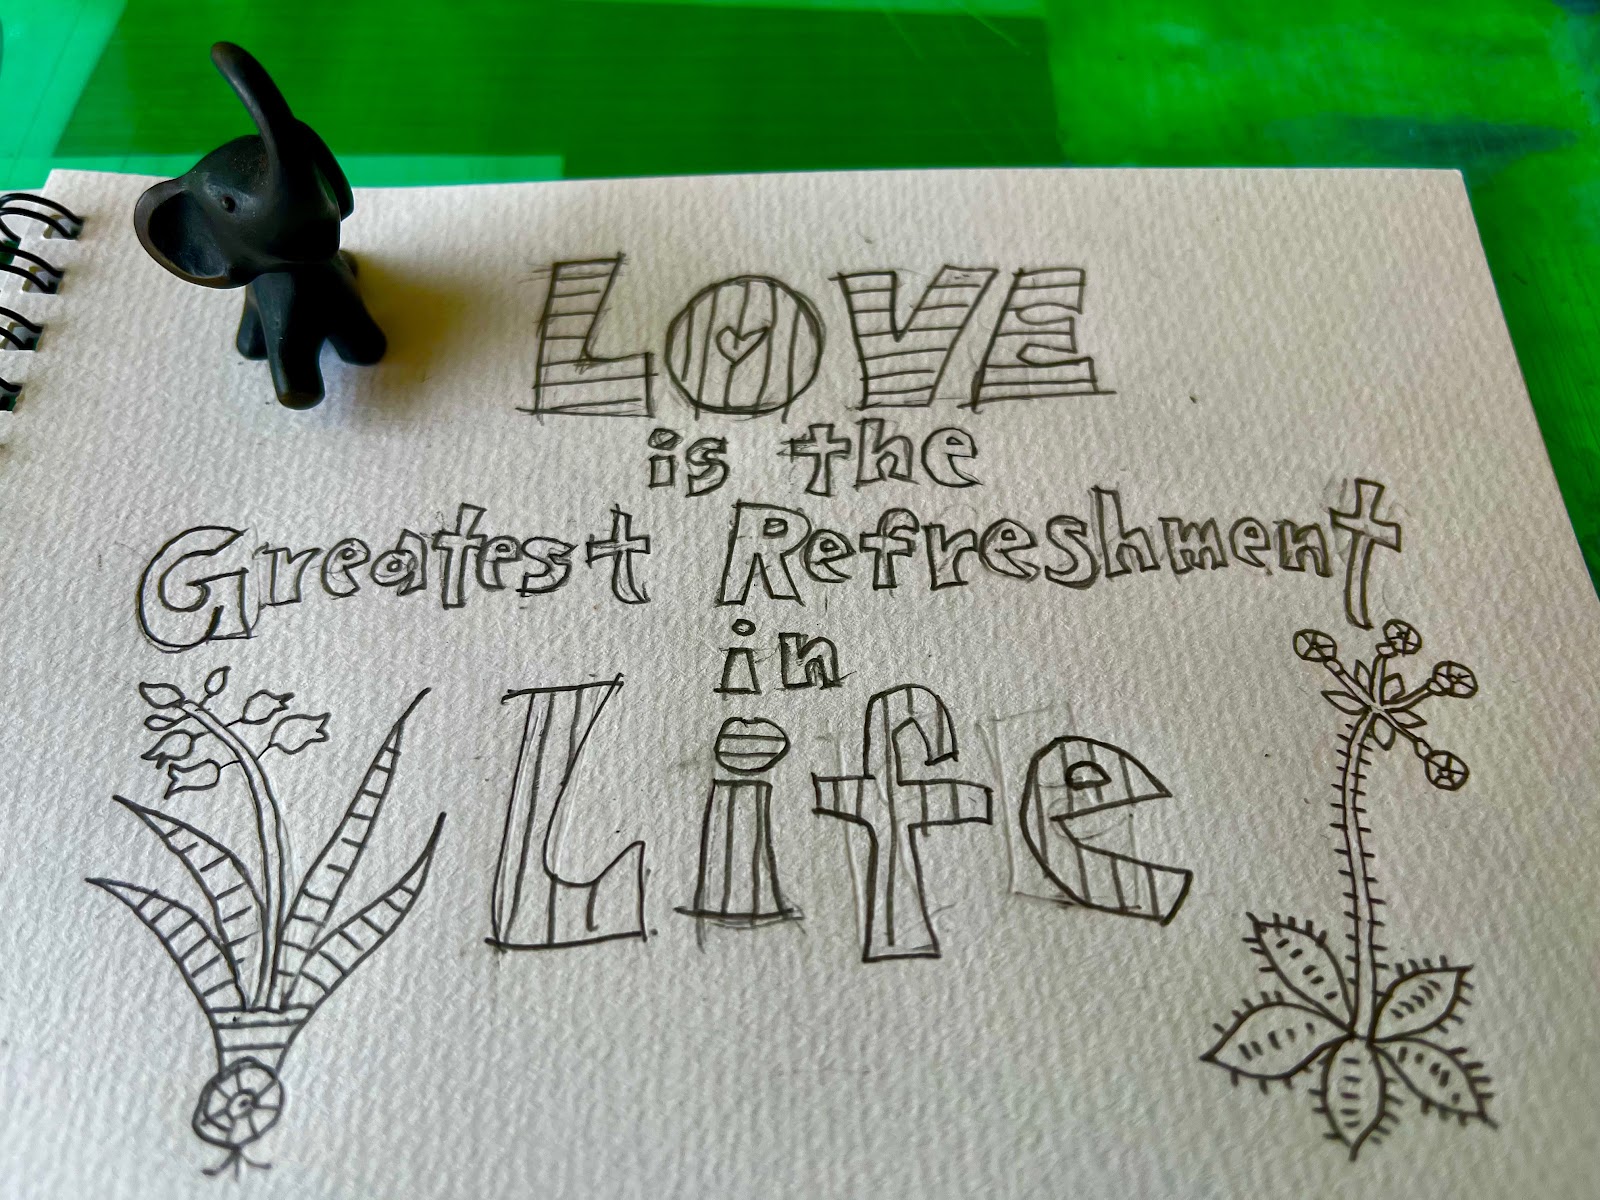 LOVE
is the
Greatest Refreshment
in
Life